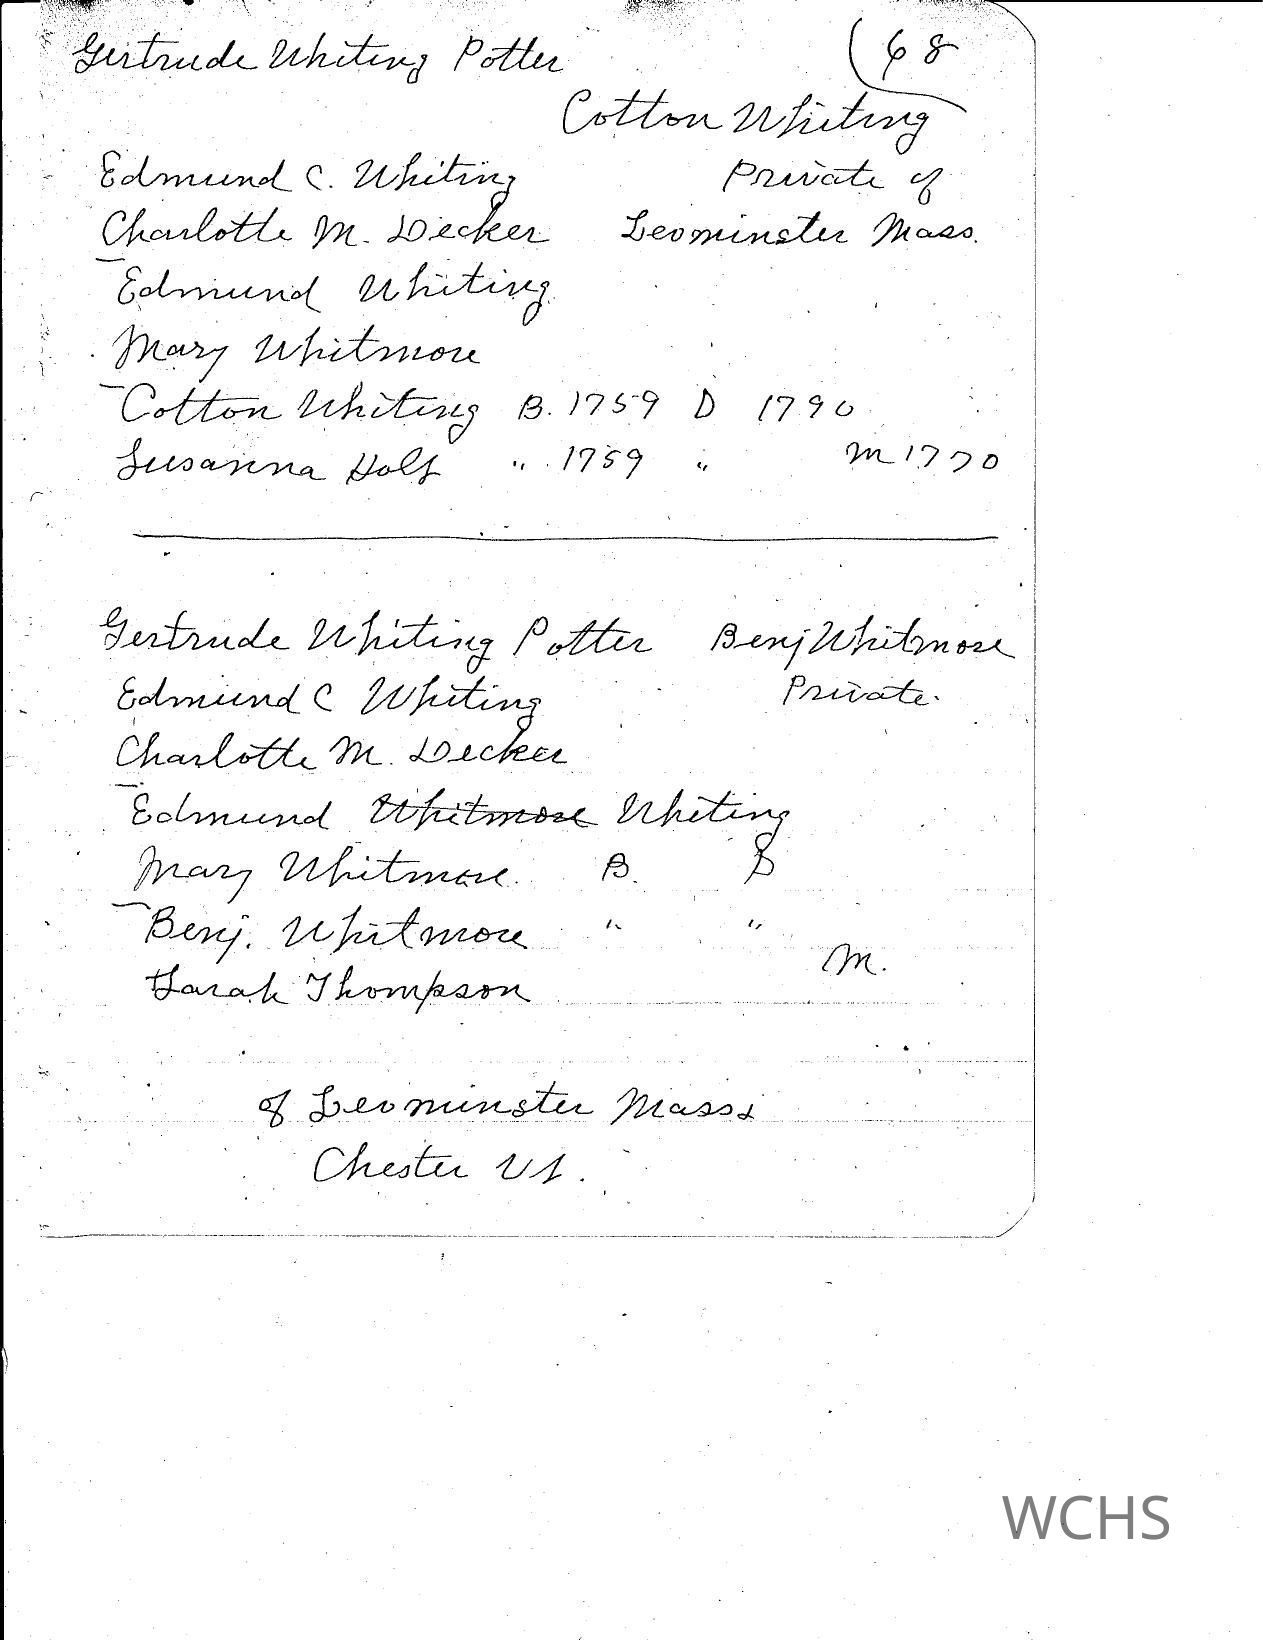 Gertrude Whiting Potter 68
Cotton Whiting
Edmund C. Whiting Private of
Charlotte M. Decker Leominster Mass.
Edmund Whiting
Mary Whitmore
Cotton Whiting B. 1759 D 1790
Susanna Holt " 1759 " M 1770
Gertrude Whiting Potter Benj Whitmore
Edmund C Whiting Private.
Charlotte M. Decker
Edmund Whitmore Whiting
Mary Whitmore B. D
Benj. Whitmore " "
M.
Sarah Thompson
of Leominster Mass &
Chester Vt.
WCHS